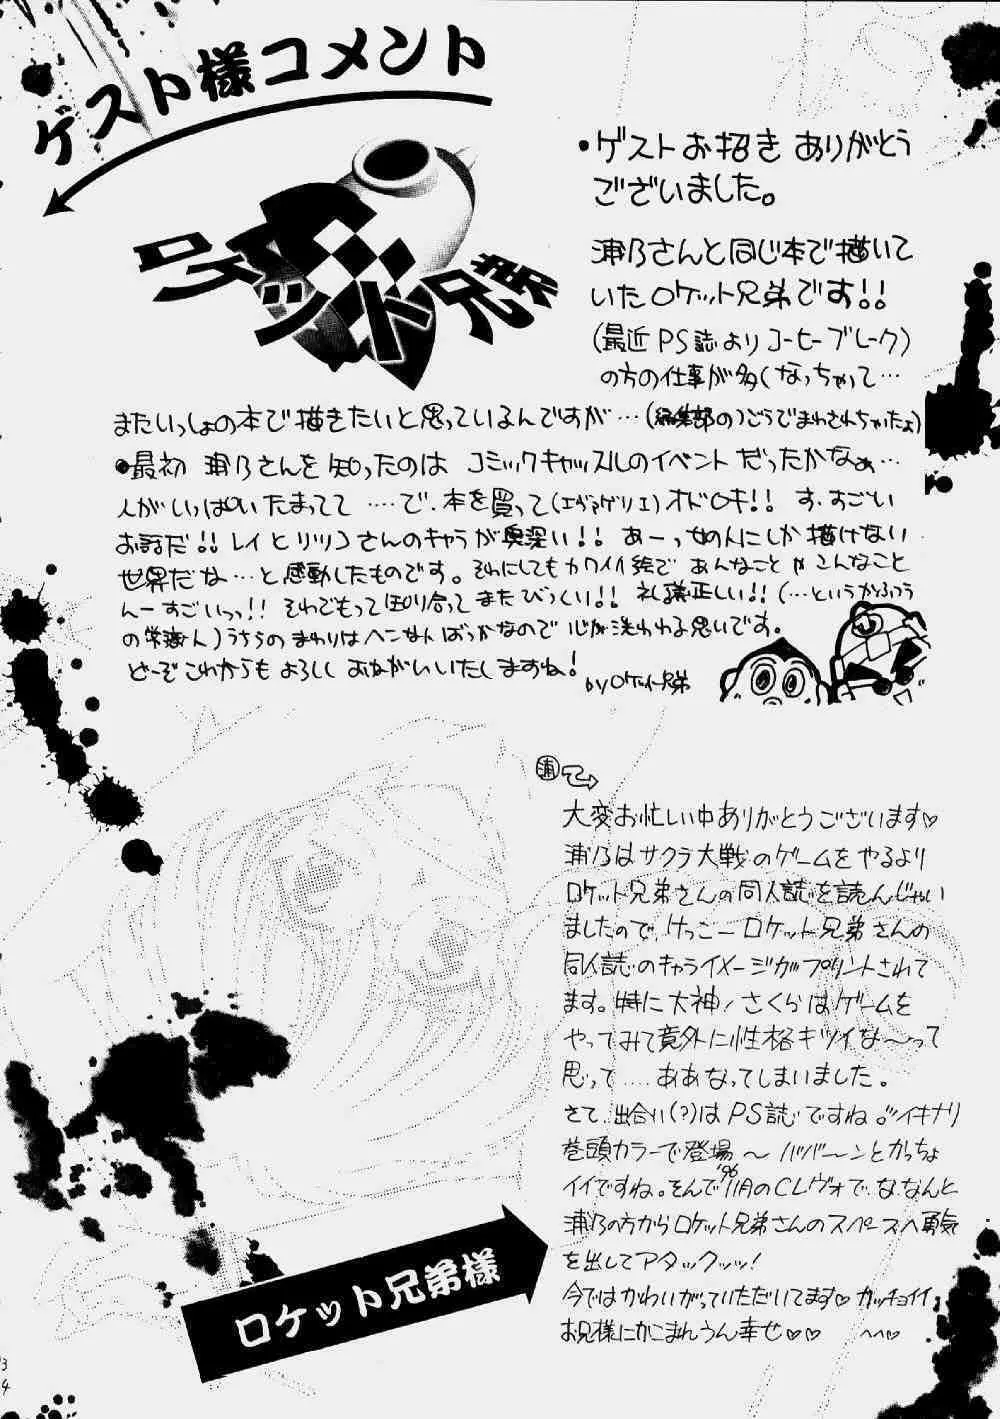 ゲスト様コメント
ロケット兄弟
・ゲストお招き ありがとう
ございました。
浦乃さんと同じ本で描いて
いたロケット兄弟です!!
(最近PS誌よりコーヒーブレーク)
の方の仕事が多くなっちゃって…
またいっしょの本で描きたいと思っているんですが…(編集部のつごうでまわされちゃいたょ)
●最初 浦乃さんを知ったのは コミックキャッスルのイベントだったかなぁ…
人がいっぱいたまってて ‥‥で、本を買って(エヴァゲリエ)オドロキ!! す、すごい
お話だ!! レイとリツコさんのキャラが奥深い!! あーっ女の人にしか描けない
世界だな…と感動したものです。それにしてもカワイイ絵で あんなことやこんなこと
んーすごいっっ!! それでもって知り合って またびっくり!! 礼儀正しい!! (…というかふつう
の常識人)うちらのまわりはヘンな人ばっかなので心が洗われる思いです。
どーぞこれからもよろしくおねがいいたしますね!
byロケット兄弟
浦
大変お忙しい中ありがとうございます♡
浦乃はサクラ大戦のゲームをやるより
ロケット兄弟さんの同人誌を読んじゃい
ましたので、けっこーロケット兄弟さんの
同人誌のキャライメージがプリントされて
ます。特に大神!さくらはゲームを
やってみて意外に性格キツイな〜って
思って‥‥ああなってしまいました。
さて、出合い(?)はPS誌ですね。イキナリ
巻頭カラーで登場〜ババーンとかっちょ
イイですね。そんで'96 11月のCレヴォで、ななんと
浦乃の方からロケット兄弟さんのスペースへ勇気
を出してアタックッッ!
今ではかわいがっていただいてます♡ カッチョイイ
お兄様にかこまれうん幸せ♡♡ ^^♡
ロケット兄弟様
34